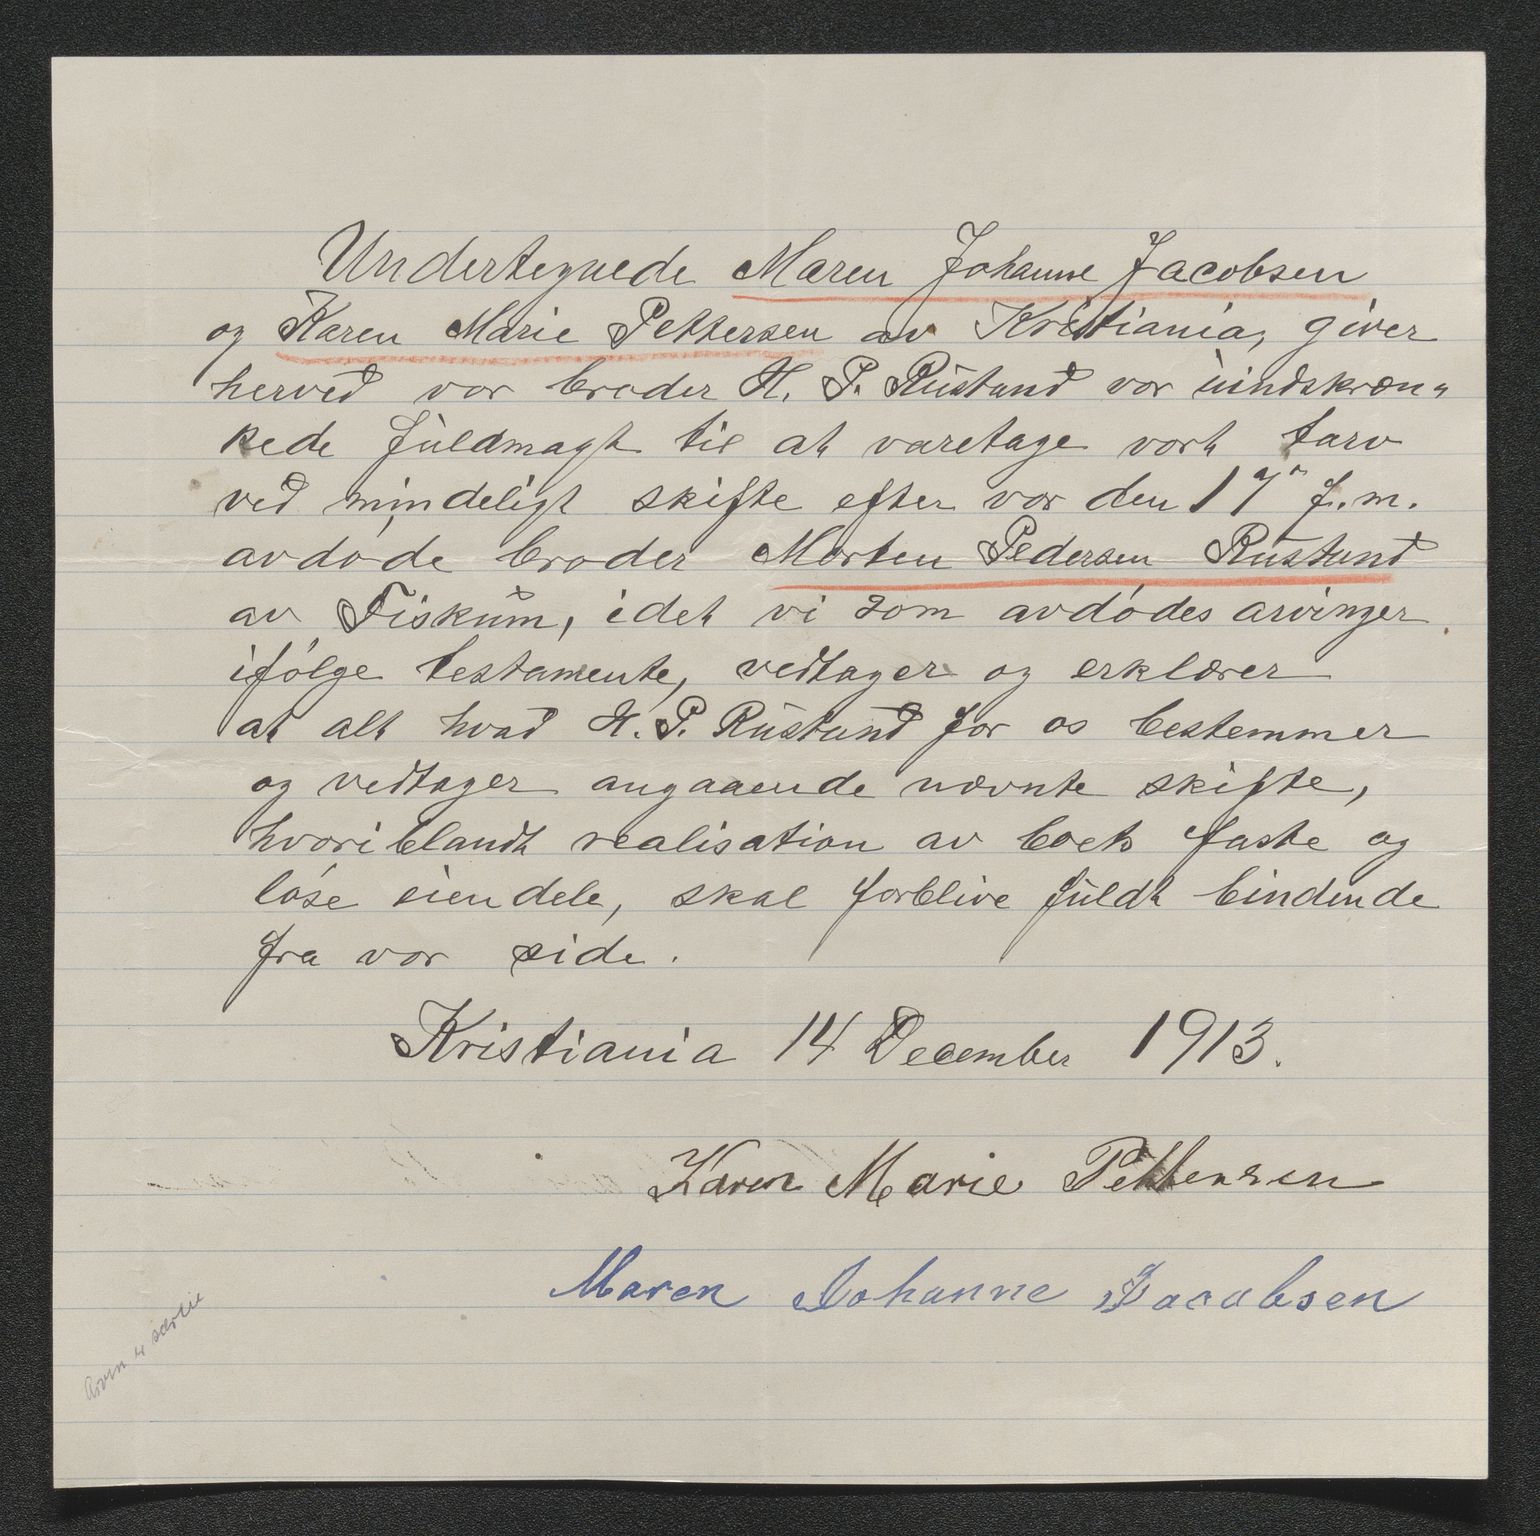 Undertegnede Maren Johanne Jacobsen
og Karen Marie Pettersen av Kristiania, giver
herved vor broder H. P. Rustand vor uindskræn-
kede fuldmagt til at varetage vort tarv
ved mindeligt skifte efter vor den 17 f.m.
avdøde broder Morten Pedersen Rustand
av Fiskum, idet vi som avdødes arvinger
ifølge testamente, vedtager og erklærer
at alt hvad H. P. Rustand for os bestemmer
og vedtager angaaende nævnte skifte,
hvoriblandt realisation av boets faste og
løse eiendele, skal forblive fuldt bindende
fra vor side.
Kristiania 14 December 1913.
Karen Marie Pettersen
Maren Johanne Jacobsen